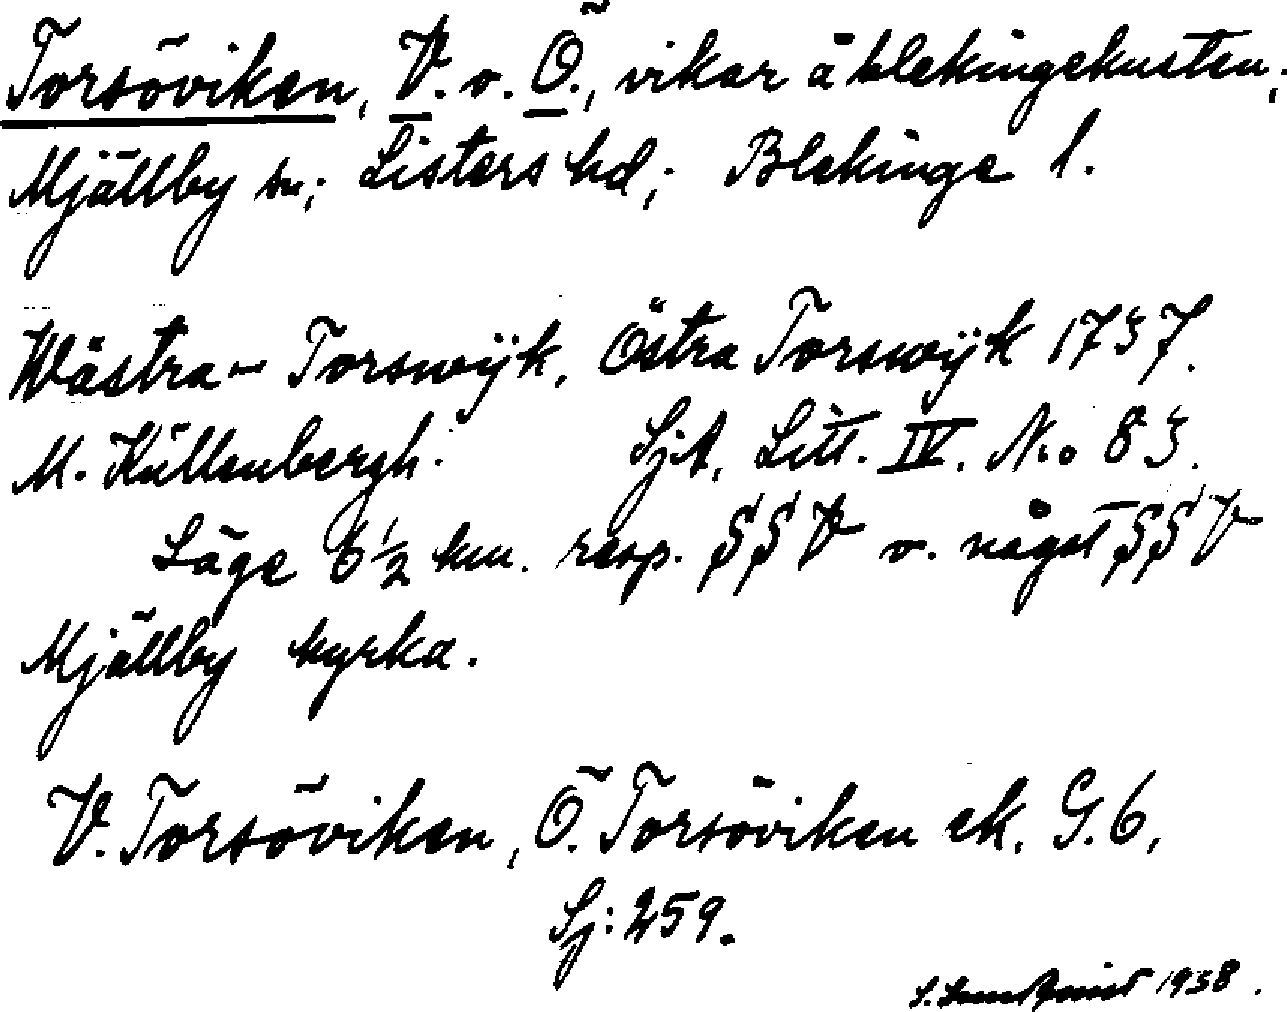 Torsöviken, V. o. Ö., vikar å blekingekusten;
Mjällby sn; Listers hd; Blekinge l.
Wästra- Torswÿk, Östra Torswÿk 1737.
M. Küllenbergh. SjA, Litt. IV. No 83.
Läge 6 1/2 km. resp. §§ V o. något §§ V
Mjällby kyrka.
V. Torsöviken, Ö. Torsöviken ek. G. 6,
Sj: 259.
1938.